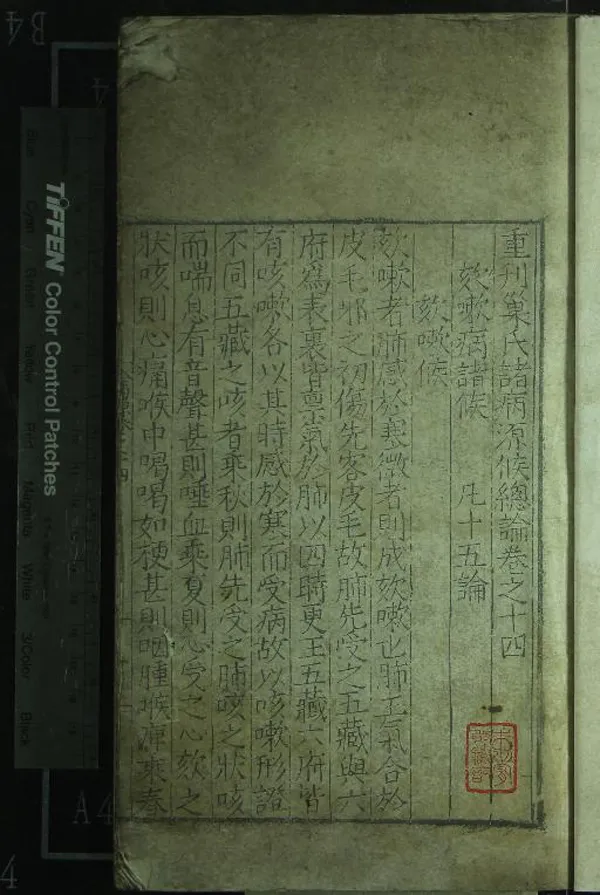 重刊巢氏諸病源候總論卷之十四
欬嗽病諸候 凡十五論
欬嗽候
欬嗽者肺感於寒微者則成欬嗽也肺主氣合於
皮毛邪之初傷先客皮毛故肺先受之五藏與六
府爲表裏皆稟氣於肺以四時更王五藏六府皆
有咳嗽各以其時感於寒而受病故以咳嗽形證
不同五藏之咳者乘秋則肺先受之肺咳之狀咳
而喘息有音聲甚則唾血乘夏則心受之心欬之
狀咳則心痛喉中喝喝如梗甚則咽腫喉痹乘春
TIFFEN Color Control Patches
Blue
Cyan
Green
Yellow
Red
Magenta
White
3/Color
Black
B4
A4
4
4